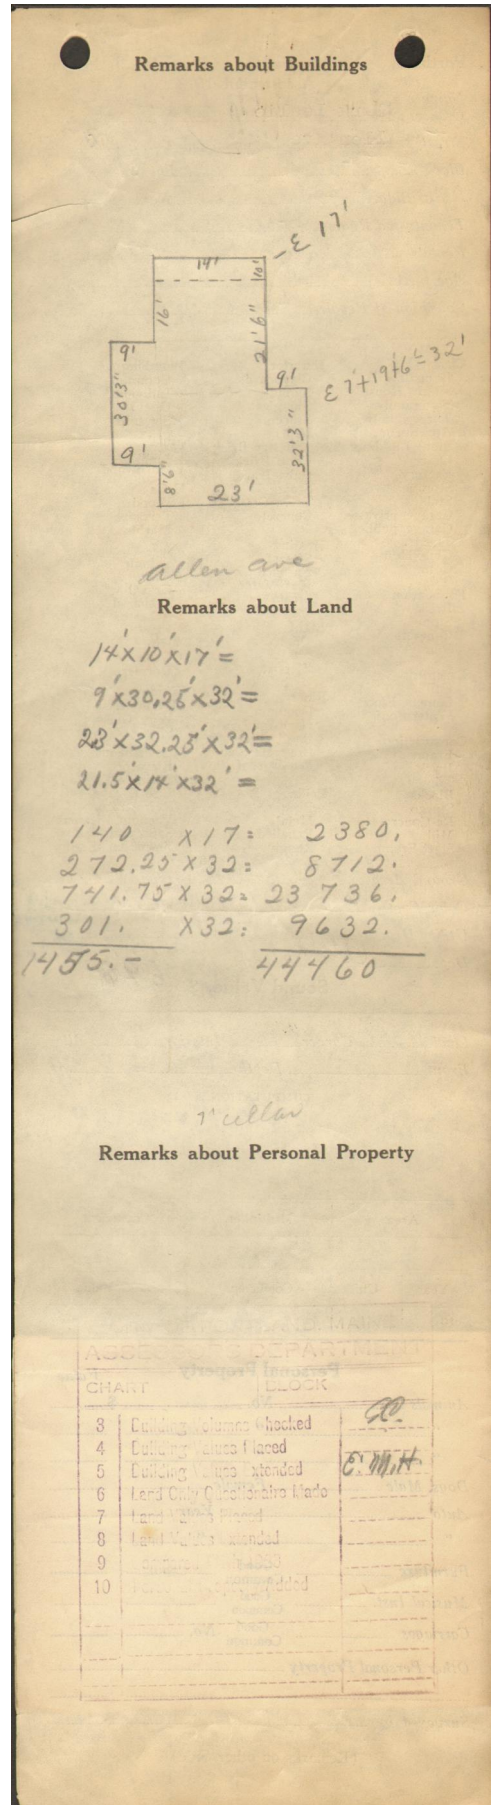 Remarks about Buildings
ε 17'
14'
10'
16'
21'6"
9'
9'
ε 7'+19'+6'=32'
30'3"
32'3"
9'
8'9"
23'
Allen Ave
Remarks about Land
14'x10'x17'=
9'x30.25'x32'=
23'x32.25'x32'=
21.5'x14'x32'=
140 x17= 2380.
272.25 x32= 8712.
741.75 x32= 23 736.
301. x32= 9632.
1455.- 44460
Remarks about Personal Property
ASSESSORS DEPARTMENT
CHART BLOCK
3 Building Columns Checked
4 Building Values Placed
5 Building Values Extended E.M.H.
6 Land Only Questionaire Made
7 Land Values Placed
8 Land Values Extended
9
10 Added